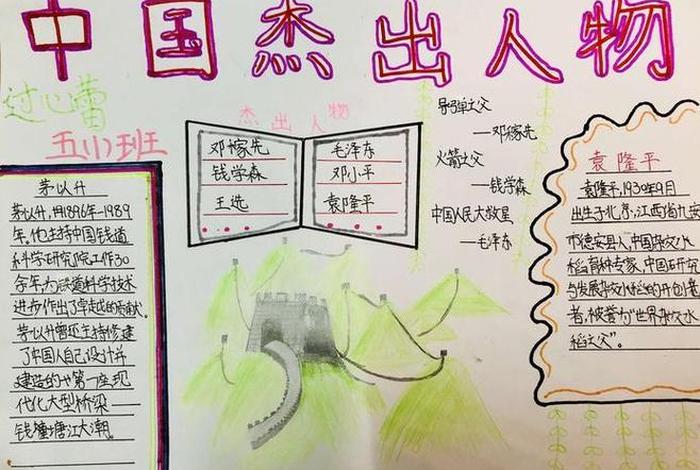 中国杰出人物
过心蕾
五(1)班
杰出人物
邓稼先
钱学森
王选
毛泽东
邓小平
袁隆平
导弹之父
—邓稼先
火箭之父
—钱学森
中国人民大救星
—毛泽东
茅以升
茅以升,用1896年-1989
年。他主持中国钱道
科学研究院工作30
余年,为铁道科学技术
进步作出了卓越的贡献.
茅以升曾主持修建
了中国人自己设计并
建造的第一座现
代化大型桥梁——
钱塘江大潮。
袁隆平
袁隆平,1930年9月
出生于北京,江西省九
市德安县人,中国杂交水
稻育种专家,中国研究
与发展杂交水稻的开创
者,被誉为“世界杂交水
稻之父”。